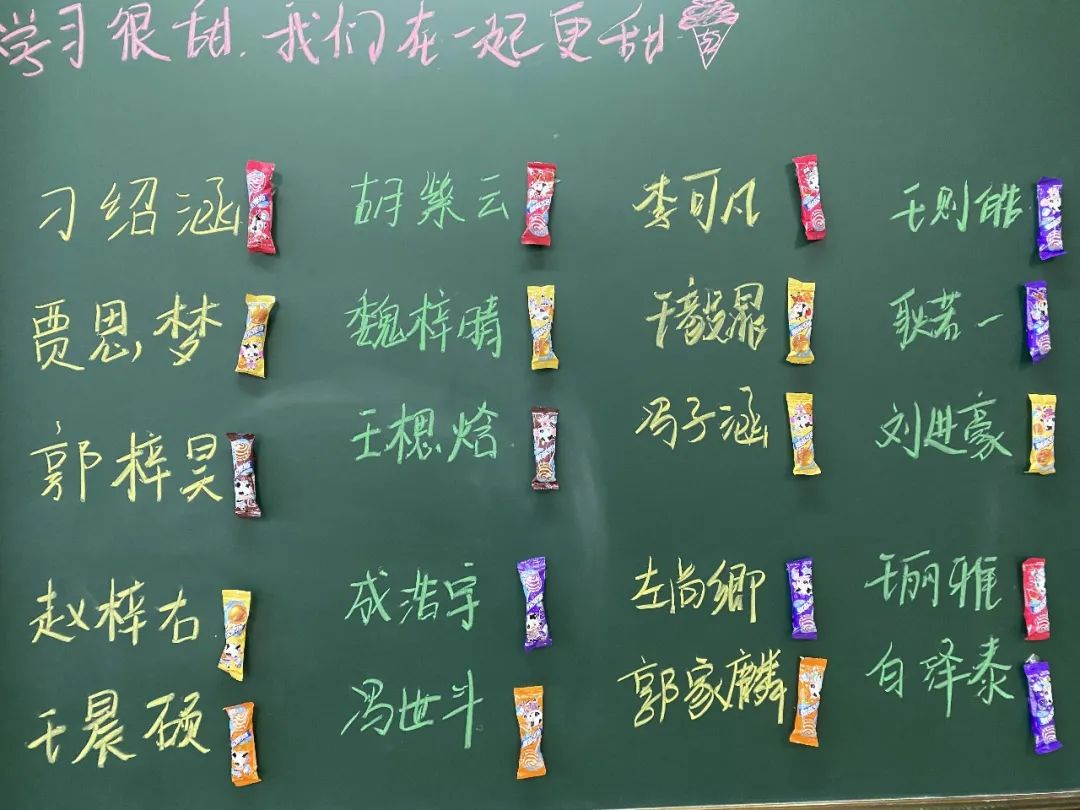 学习很甜,我们在一起更甜
刁绍涵 胡紫云 李可凡 王则皓
贾思梦 魏梓晴 王毅晨 耿若一
郭梓昊 王楒焓 冯子涵 刘进豪
赵梓右 成浩宇 左尚卿 王丽雅
王晨硕 冯世斗 郭家麟 白泽泰